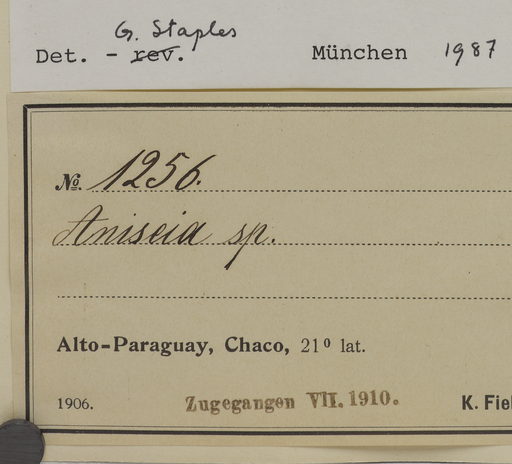 G. Staples
Det. - rev. München 1987
No. 1256.
Aniseia sp.
Alto-Paraguay, Chaco, 21º lat.
1906. Zugegangen VII. 1910. K. Fie